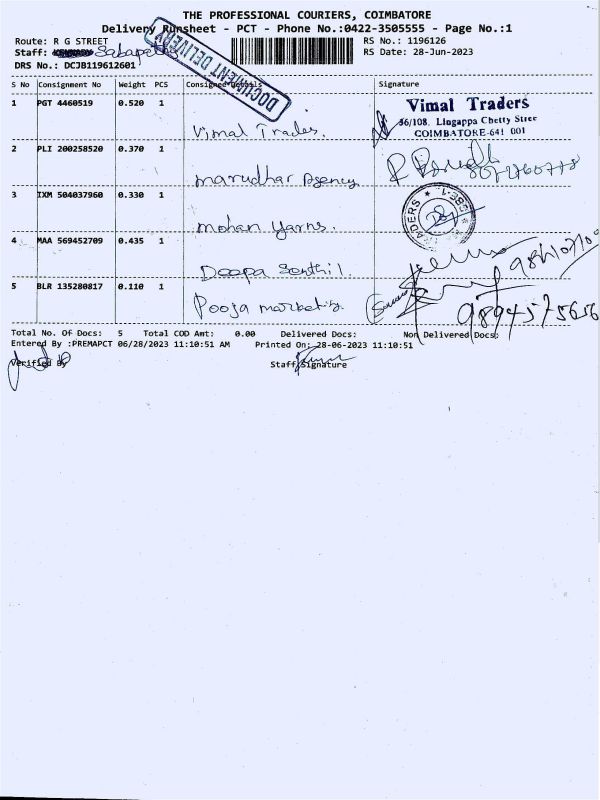 THE PROFESSIONAL COURIERS, COIMBATORE
Delivery Runsheet - PCT - Phone No.:0422-3505555 - Page No.:1
Route: R G STREET
RS No.: 1196126
Staff:
RS Date: 28-Jun-2023
DRS No.: DCJB119612601
DOCUMENT DELIVERY
S No Consignment No Weight PCS Consignee Details Signature
1 PGT 4460519 0.520 1 Vimal Trades.
Vimal Traders
36/108, Lingappa Chetty Street
COIMBATORE-641 001
2 PLI 200258520 0.370 1 marudhar Agency
3 IXM 504037960 0.330 1 mohan yarns.
4 MAA 569452709 0.435 1 Deepa Senthil.
5 BLR 135280817 0.110 1 Pooja marketing
9894575656
Total No. Of Docs: 5 Total COD Amt: 0.00 Delivered Docs: Non Delivered Docs:
Entered By :PREMAPCT 06/28/2023 11:10:51 AM Printed On: 28-06-2023 11:10:51
Verified By Staff Signature